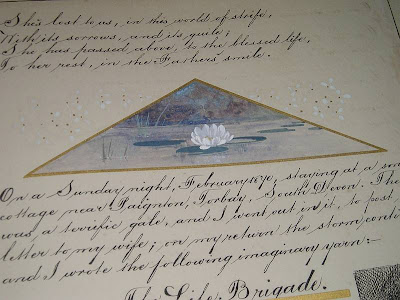 She's lost to us, in this world of strife,
With its sorrows, and its guile;
She has passed above, to the blessed life,
To her rest, in the Fathers' smile.
On a Sunday night, February 1870, staying at a
cottage near Paignton, Torbay, South Devon. The
was a terrific gale, and I went out in it, to post
letter to my wife; on my return the storm conti
and I wrote the following imaginary yarn:-
The Life Brigade.